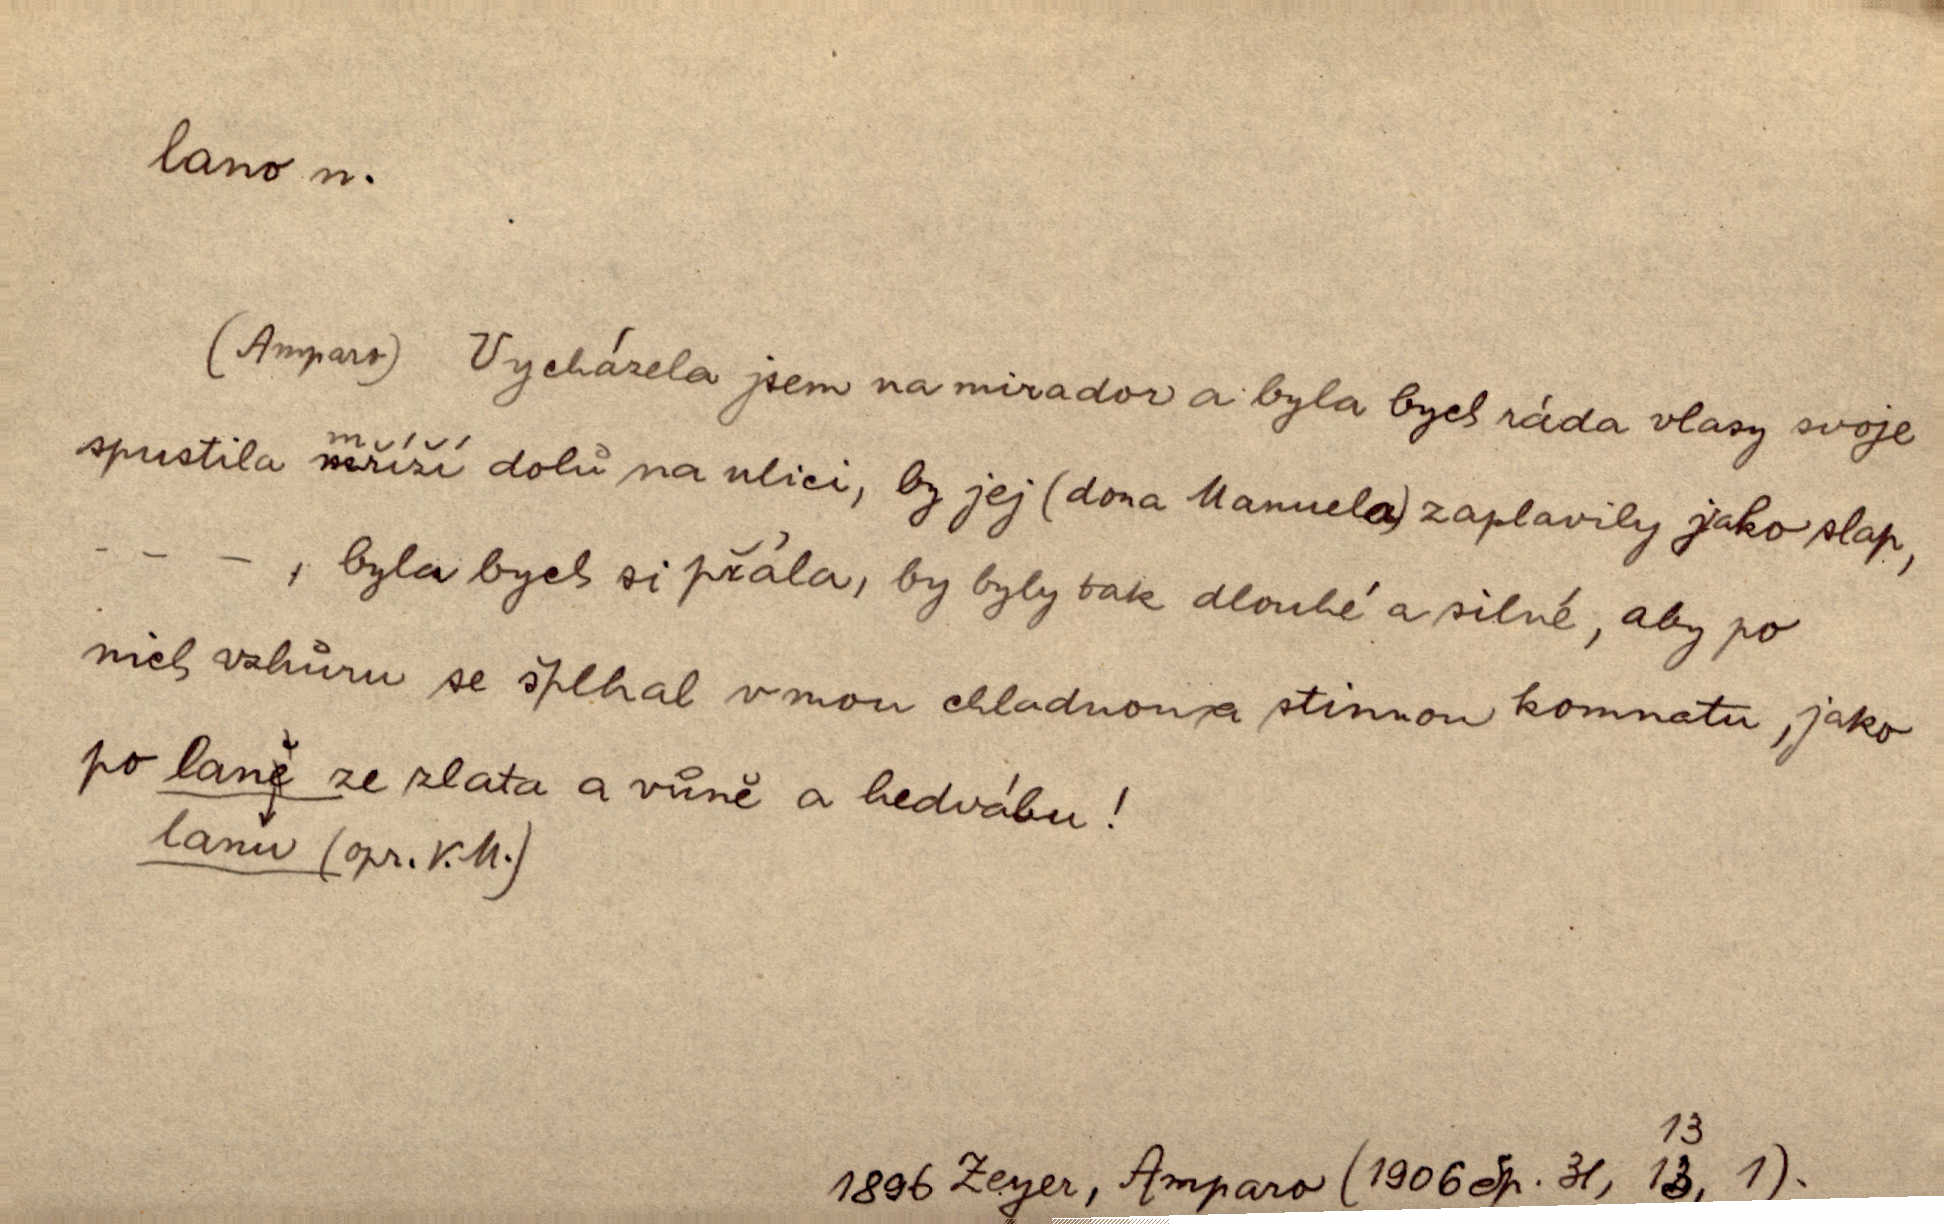 lano n.
(Amparo) Vycházela jsem na mirador a byla bych ráda vlasy svoje
spustila mříží dolů na ulici, by jej (dona Manuela) zaplavily jako slap,
- - - , byla bych si přála, by byly tak dlouhé a silné, aby po
nich vzhůru se šplhal v mou chladnou a stinnou komnatu, jako
po laně ze zlata a vůně a hedvábu!
lanu (opr. V.M.)
13
1896 Zeyer, Amparo (1906 Sp. 31, 13, 1).